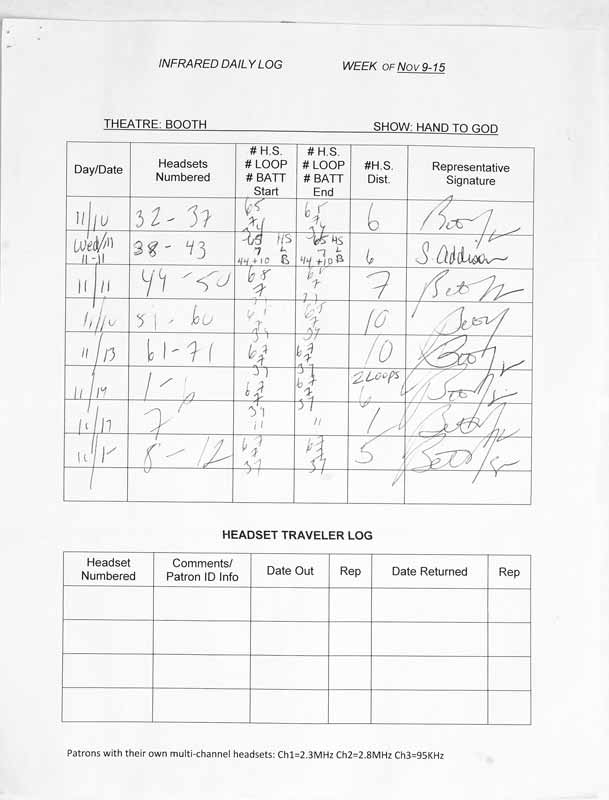 INFRARED DAILY LOG WEEK OF NOV 9-15
THEATRE: BOOTH SHOW: HAND TO GOD
Day/Date Headsets Numbered # H.S. # LOOP # BATT Start # H.S. # LOOP # BATT End #H.S. Dist. Representative Signature
11/10 32 - 37 65 65 6
Wed/11 11-11 38 - 43 65 HS 7 L 44+10 B 65 HS 7 L 44+10 B 6 S. Addison
11/11 44 - 50 68 7 7 7
51 - 60 37 65 37 10
11/13 61 - 71 67 7 37 67 7 37 10 2 LOOPS
11/14 1 - 6 67 7 37 67 7 37 6
11/17 7 11 11 1
8 - 12 67 7 37 67 7 37 5
HEADSET TRAVELER LOG
Headset Numbered Comments/ Patron ID Info Date Out Rep Date Returned Rep
Patrons with their own multi-channel headsets: Ch1=2.3MHz Ch2=2.8MHz Ch3=95KHz